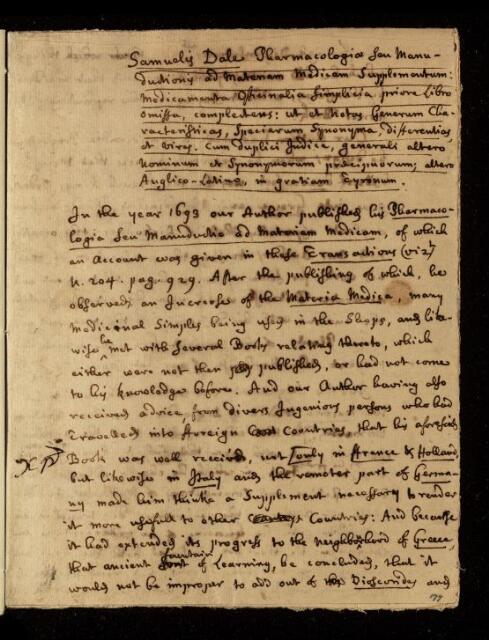 Samuelis Dale Pharmacologiæ seu Manu-
ductionis ad Materiam Medicam Supplementum:
Medicamenta Officinalia Simplicia priore Libro
omissa, complectens: ut et Notas Generum Cha-
racteristicas, Specierum Synonyma, differentias
et vires. Cum duplici Indice, generali altero
Nominum et Synonymorum præcipuorum; altero
Anglico-Latino, in gratiam Tyronum.
In the year 1693 our Author published his Pharmaco-
logia seu Manuductio ad Materiam Medicam, of which
an Account was given in these Transactions (vizt
N. 204. pag. 929. After the publishing of which, he
observed an Increase of the Materia Medica, many
Medicinal Simples being used in the Shops, and like-
wise he met with several Books relating thereto, which
either were not then published, or had not come
to his knowledge before. And our Author having also
received advice, from divers Ingenious persons who had
Travelled into Foreign Countries, that his aforesaid
Book was well received, not only in France & Holland,
but likewise in Italy and the remoter part of Germa-
ny made him think a Supplement necessary to render
it more usefull to other Countries: And because
it had extended its progress to the neighbourhood of Greece,
that ancient fountain of Learning, he concluded, that it
would not be improper to add out of Dioscorides and
77